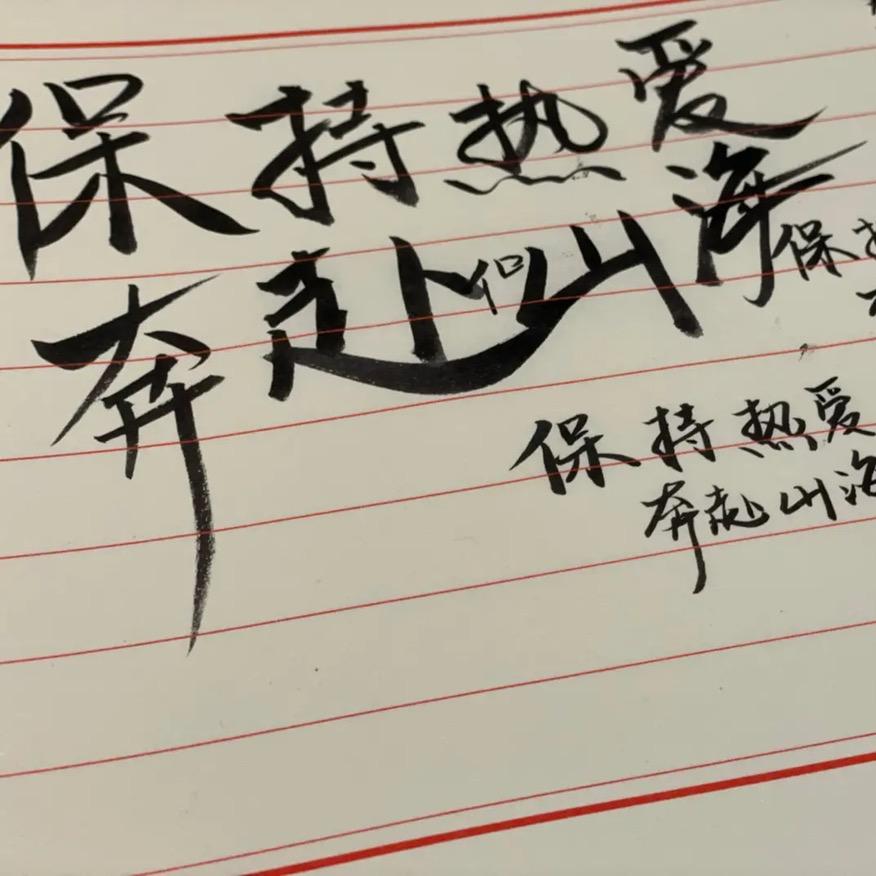 保持热爱
奔赴山海
保持
保持热爱
奔赴山海